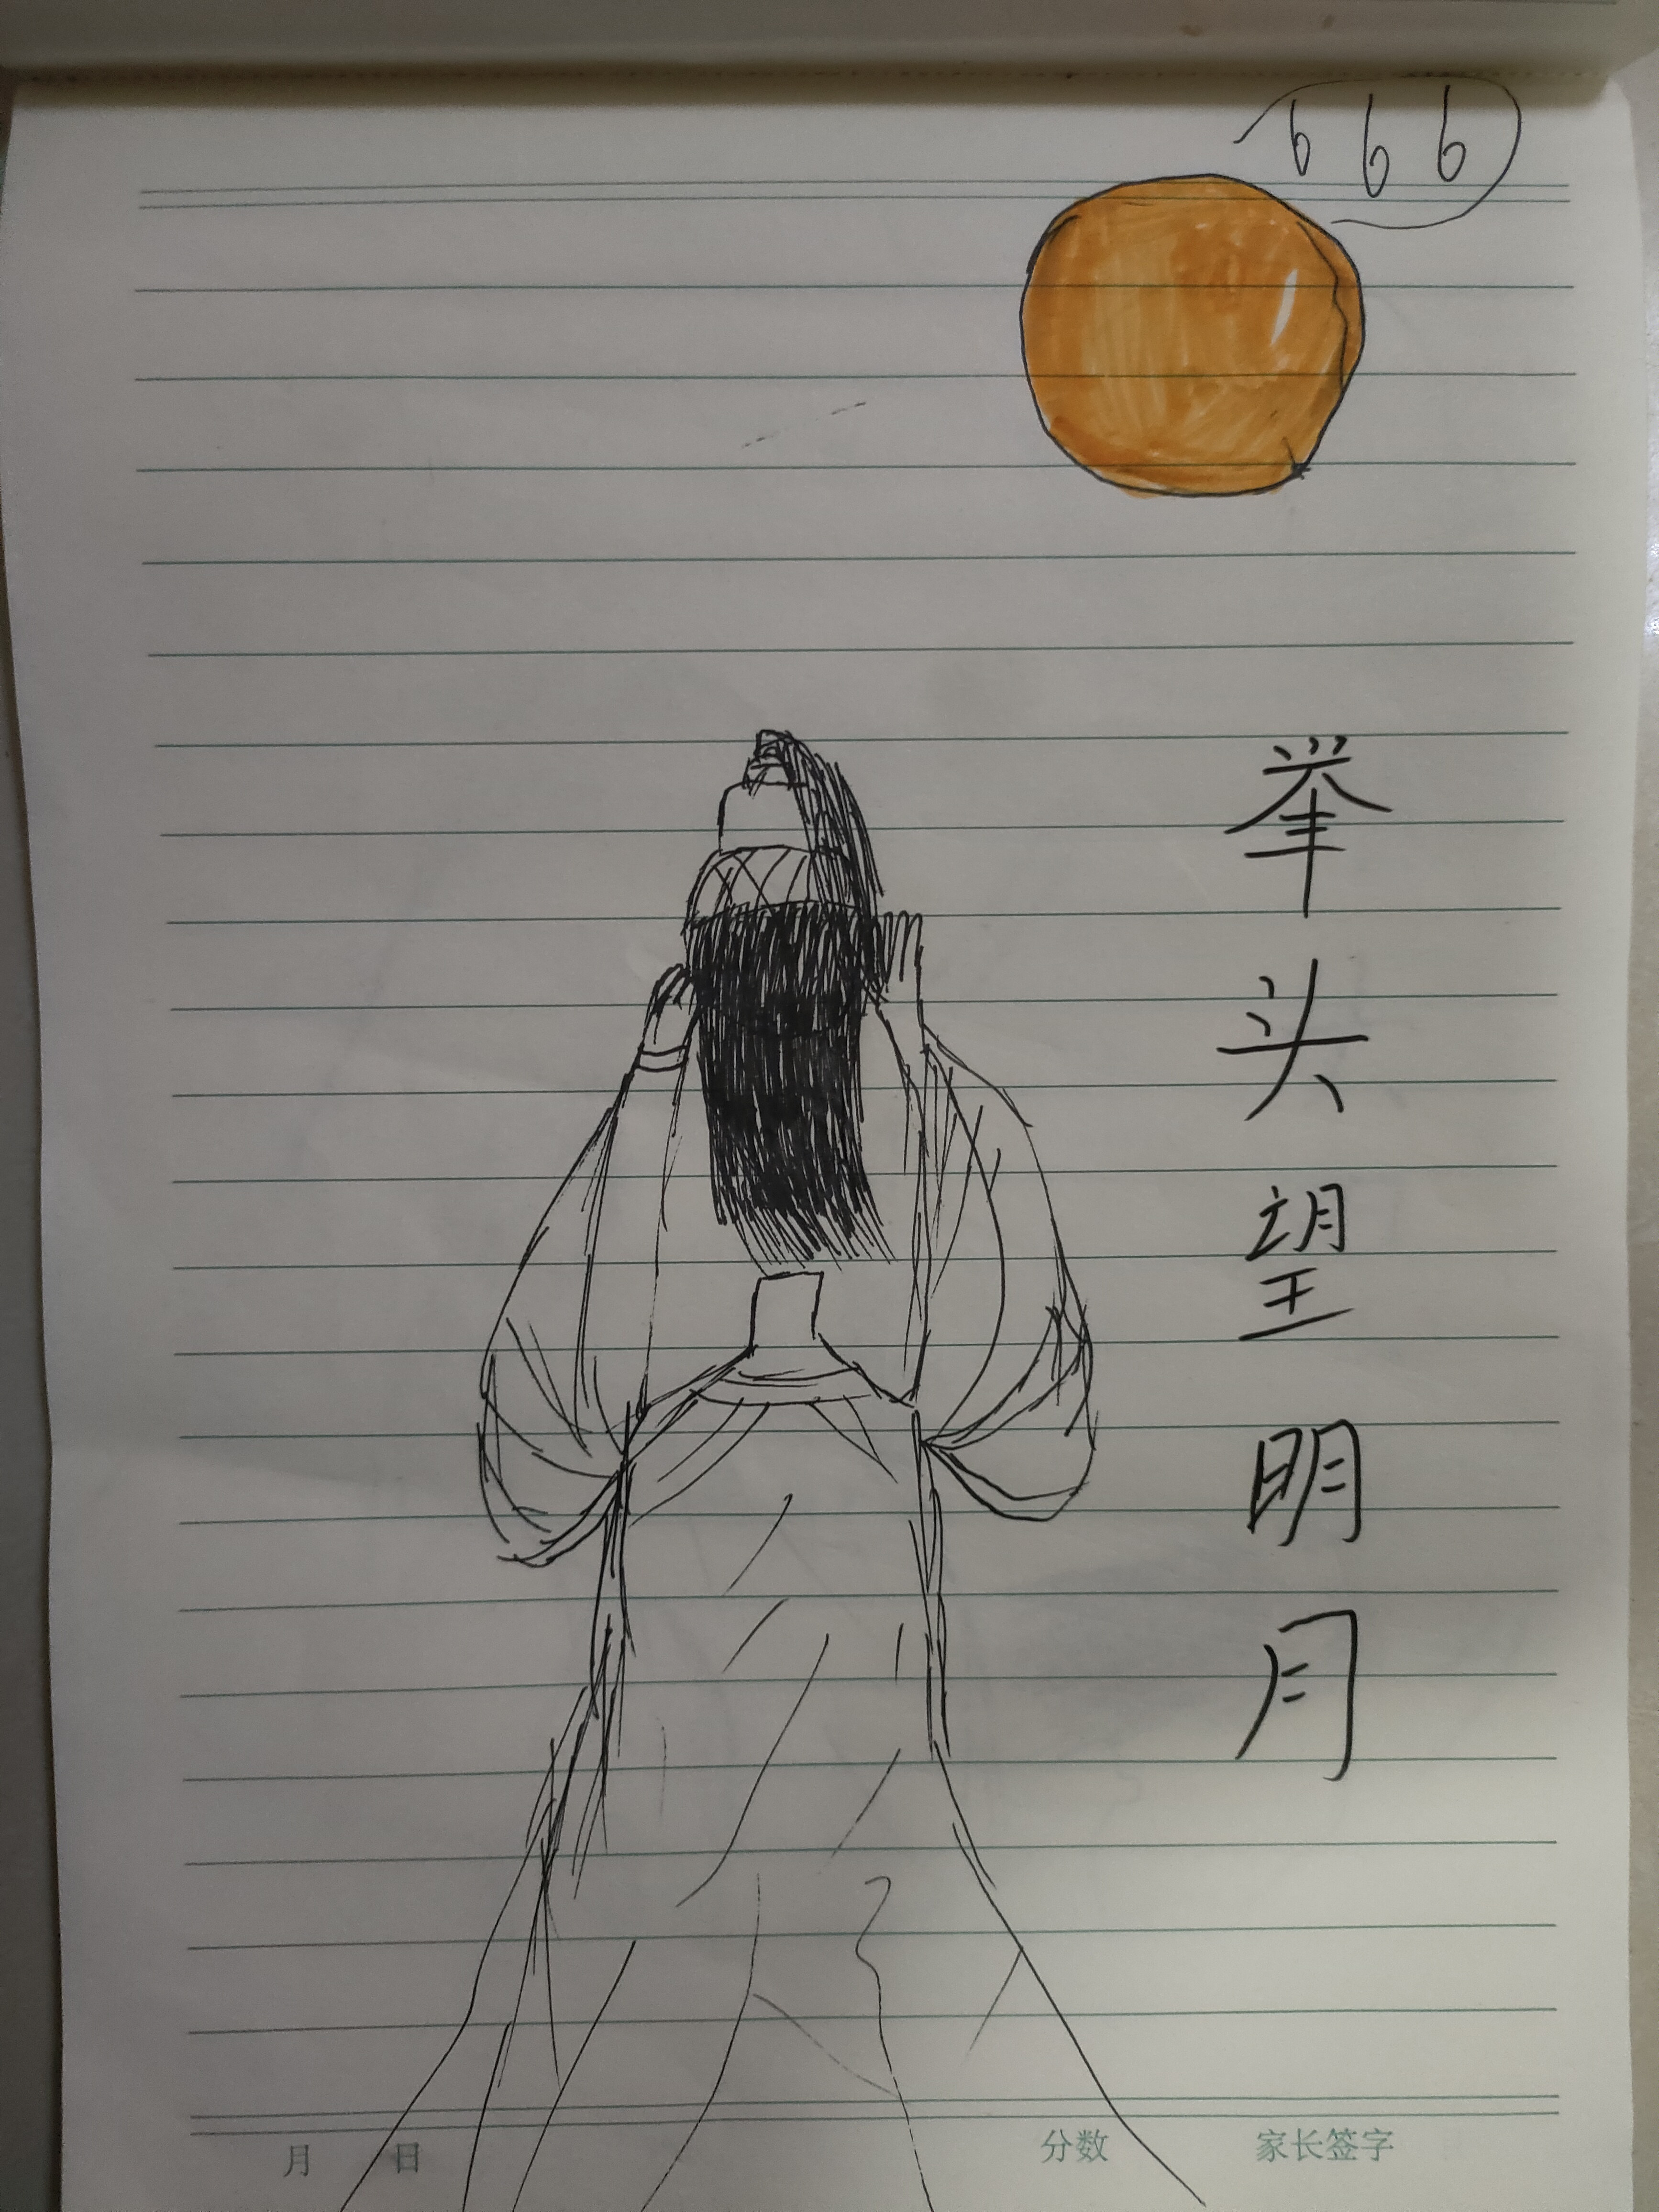 666
举头望明月
月 日 分数 家长签字